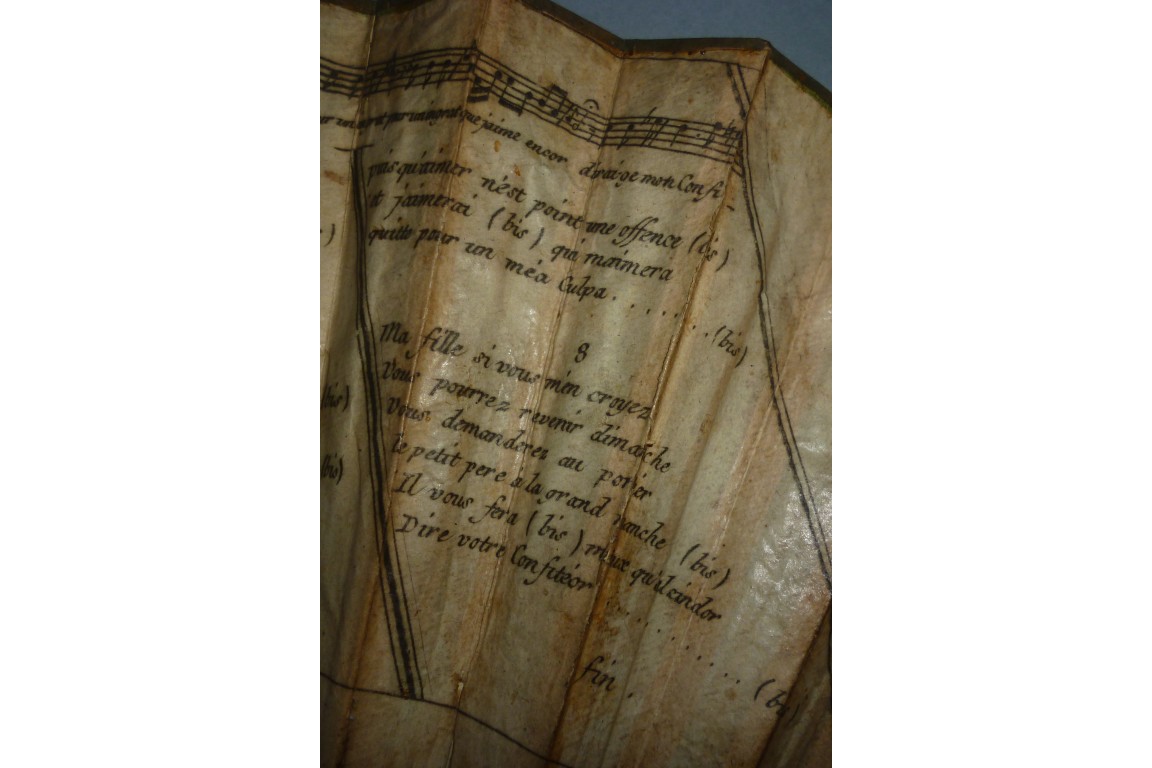 un ingrat pour un ingrat que jaime encor dirai-ge mon Confi
puis qu'aimer n'est point une offence (bis)
et j'aimerai (bis) qui m'aimera
quitte pour un méa Culpa . . . . . . . (bis)
8
Ma fille si vous m'en croyez
Vous pourrez revenir dimache
Vous demanderez au portier
le petit pere a la grand manche (bis)
Il vous fera (bis) mieux
Dire votre Confitéor . . . . . . . . . (bis)
fin .
(bis)
(bis)